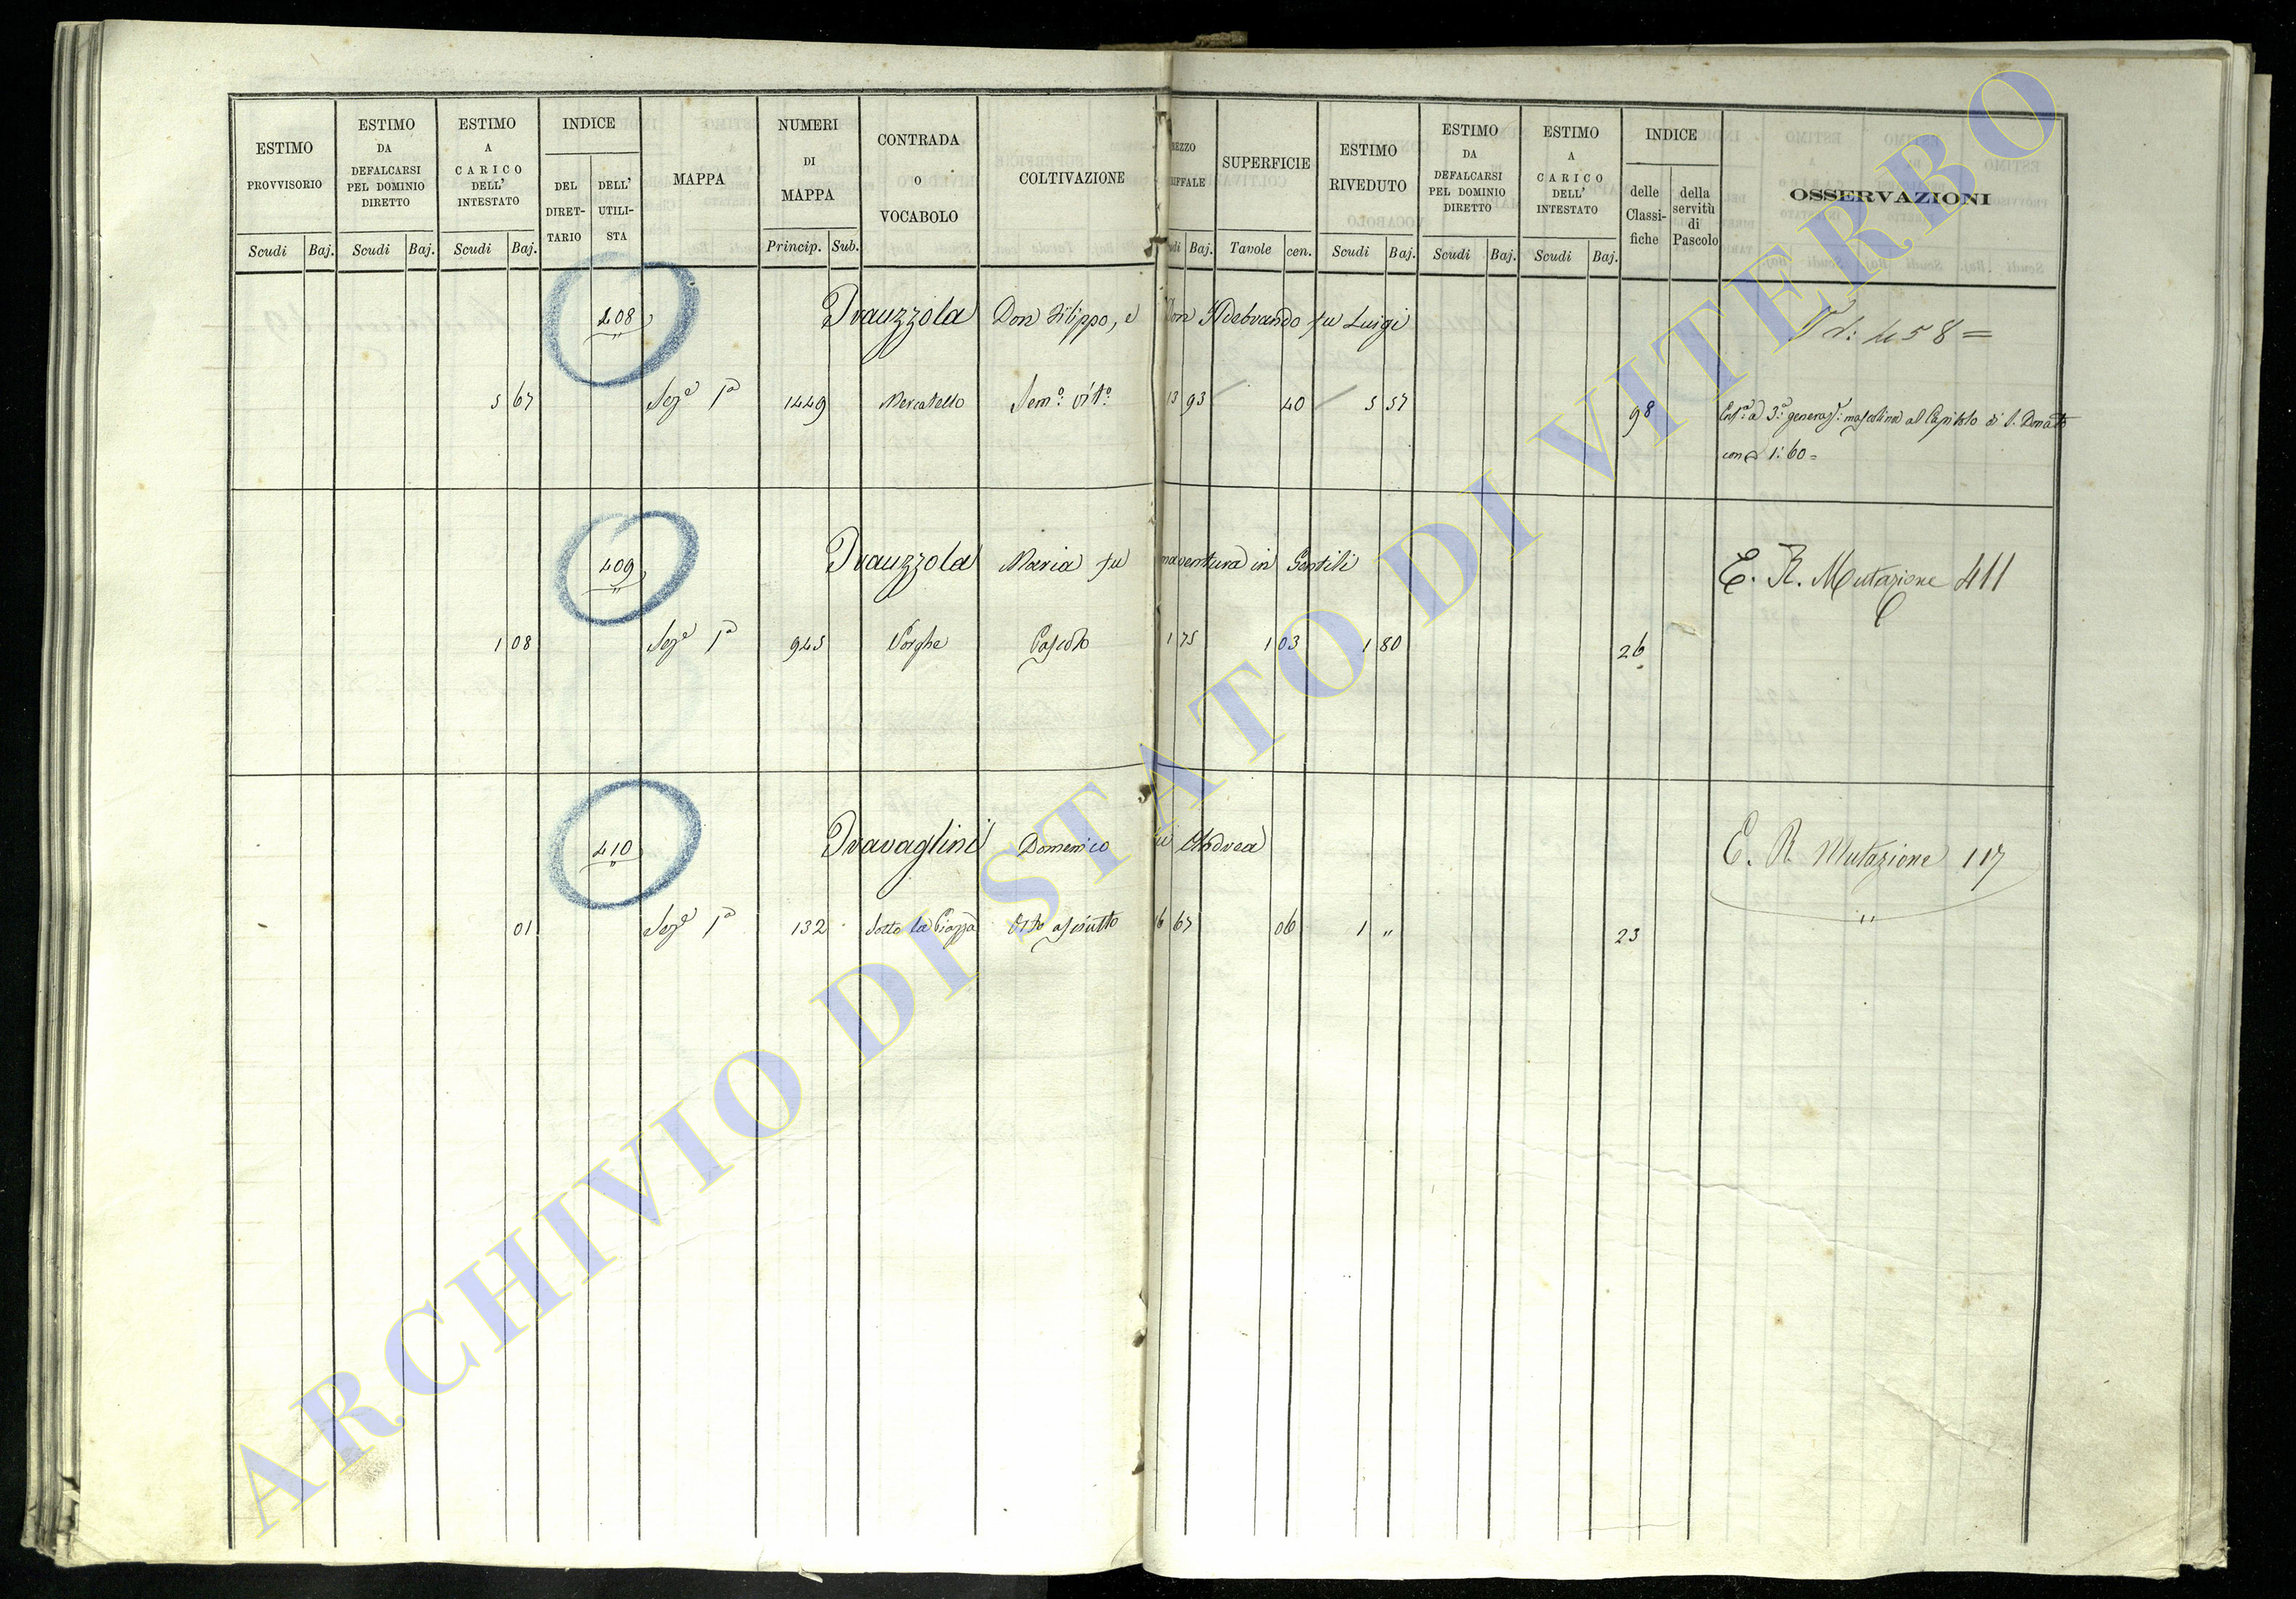 ESTIMO PROVVISORIO | ESTIMO DA DEFALCARSI PEL DOMINIO DIRETTO | ESTIMO A CARICO DELL' INTESTATO | INDICE | MAPPA | NUMERI DI MAPPA | CONTRADA O VOCABOLO | COLTIVAZIONE | REZZO RIFFALE | SUPERFICIE | ESTIMO RIVEDUTO | ESTIMO DA DEFALCARSI PEL DOMINIO DIRETTO | ESTIMO A CARICO DELL' INTESTATO | INDICE | OSSERVAZIONI
DEL DIRET- TARIO | DELL' UTILI- STA | delle Classi- fiche | della servitù di Pascolo
Scudi | Baj. | Scudi | Baj. | Scudi | Baj. | Princip. | Sub. | udi | Baj. | Tavole | cen. | Scudi | Baj. | Scudi | Baj. | Scudi | Baj.
408 Trauzzola Don Filippo, e Don Ildebrando fu Luigi 458 =
5 67 Sez.e 1a 1449 Mercatello Sem.o Vit.o 13 93 40 5 57 98 Enf.a a 3.a generaz.: mascolina al Capitolo di S. Donato
con 1:60=
409 Trauzzola Maria fu naventura in Gentili E. R. Mutazione 411
1 08 Sez.e 1a 945 Pascolo 1 75 1 03 1 80 26
410 Travaglini Domenico fu Andrea E. R. Mutazione 117
01 Sez.e 1a 132 Sotto la Piazza Orto asciutto 16 67 06 1 " 23
ARCHIVIO DI STATO DI VITERBO